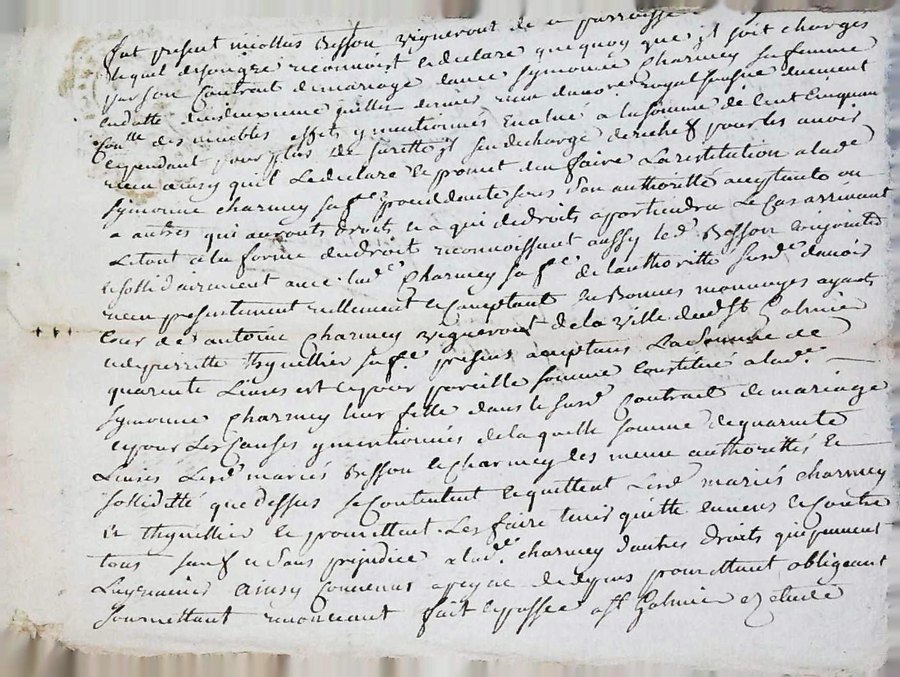 fut present nicollas Besson vigneront de ce parroisse
lequel de son gre reconnoist et declare que quoy que il soit charges
par son Contrat de mariage davec Symonne Charmey sa femme
en datte du deuxieme juillet dernier
des meubles effets y mentionnes Evalué a la somme de Cent Cinquan
cependant pour plus de surette il sen decharge derechef pour les avoir
receu ainsy qu'il Le declare et promet den faire La restitution a lad.e
Symonne charmey sa f.e precedente sous son authoritté acceptante ou
a autres qui auronts droits et a qui de droits apartiendra Le Cas arrivant
Le tout a la forme du droit reconnoissant aussy led. Besson Conjointt
et sollidairement avec lad.e Charmey sa f.e de l'authoritté susd.e d'avoir
receu presentement reellement et Comptant en Bonnes monnoyes ayants
Cour de antoine Charmey vigneront de la ville dud St Galmier
et de pierrette thynellier sa f.e presens acceptans La Somme de
quarente Livres et ce pour pareille somme Constitué a lad.e
Symonne Charmey leur fille dans le susd Contrait de mariage
et pour Les Causes y mentionnés de laquelle somme de quarente
Livres Lesd mariés Besson et Charmey des meme authorittés et
sollidité que dessus se Contentent et quittent Lesd mariés charmey
et thynellier et promettent Les faire tenir quitte envers et Contre
tous sauf et sans prejudice a lad.e charmey d'autres droits
ainsy Convenus a peyne de depens promettant obligeant
soumettant renonceant fait et passée a St Galmier etude